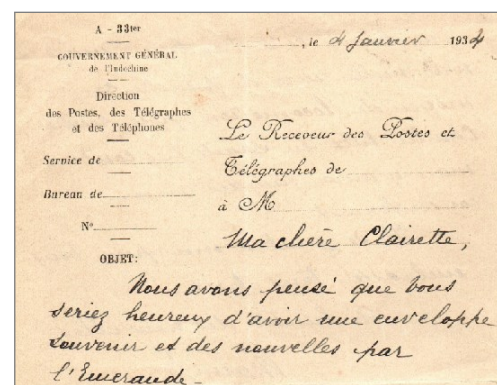 A - 33ter
GOUVERNEMENT GÉNÉRAL
de l'Indochine
Direction
des Postes, des Télégraphes
et des Téléphones
Service de
Bureau de
N°
OBJET:
, le 4 Janvier 1934
Le Receveur des Postes et
Télégraphes de
à M
Ma chère Clairette,
Nous avons pensé que vous
seriez heureux d'avoir une enveloppe
souvenir et des nouvelles par
l'Emeraude -